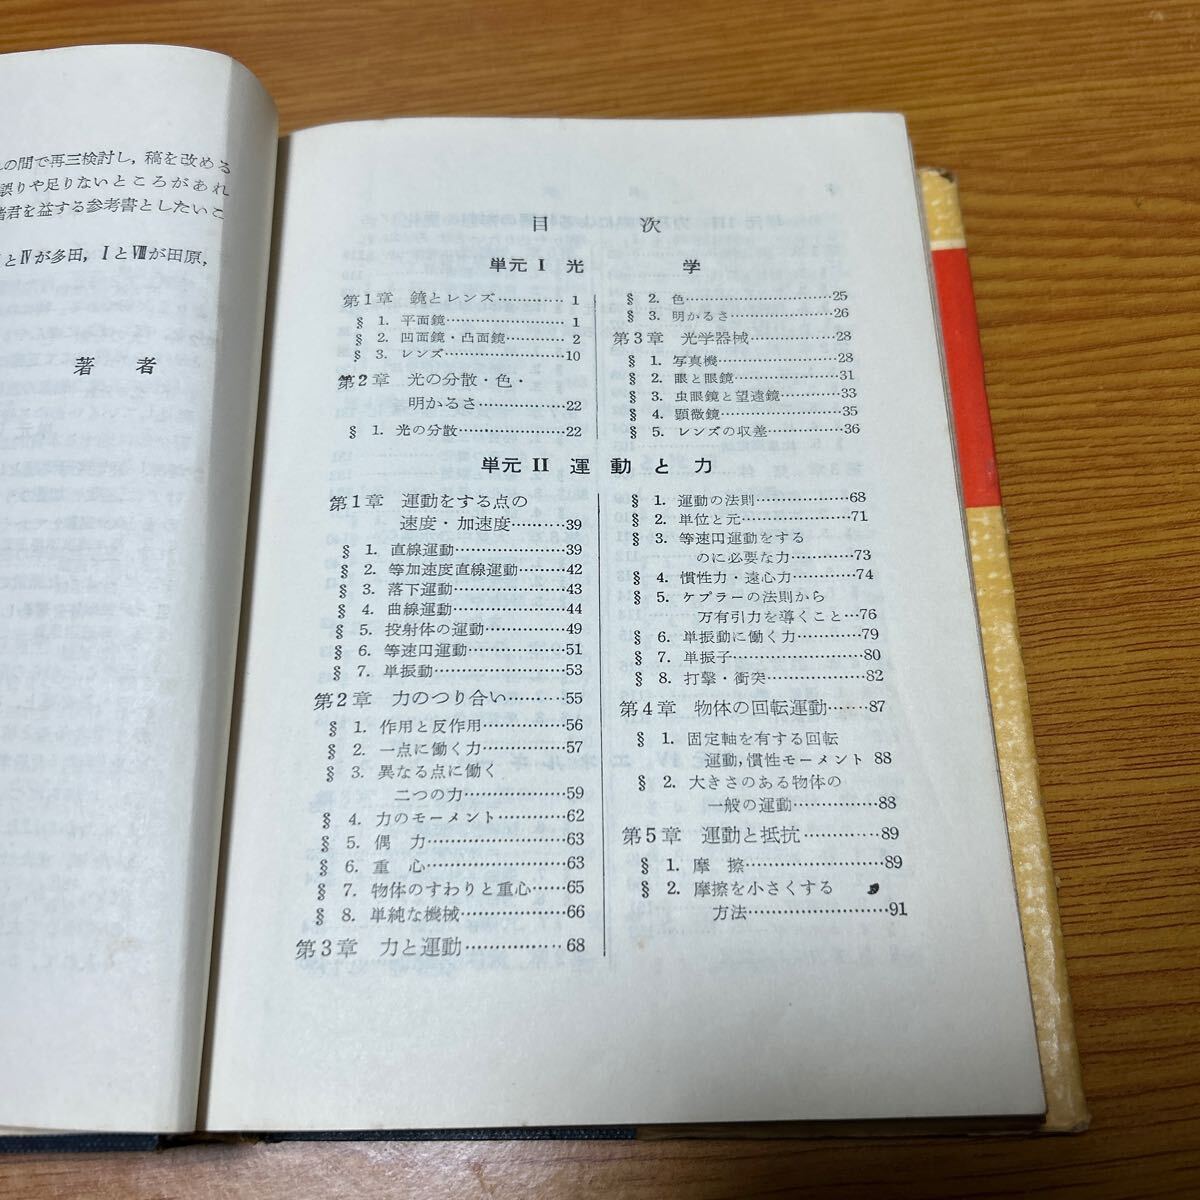 の間で再三検討し，稿を改める
誤りや足りないところがあれ
諸君を益する参考書としたいこ
とⅣが多田，ⅠとⅧが田原，
著者
目次
単元 I 光学
第1章 鏡とレンズ…………1
§ 1. 平面鏡…………1
§ 2. 凹面鏡・凸面鏡…………2
§ 3. レンズ…………10
第2章 光の分散・色・
明かるさ…………22
§ 1. 光の分散…………22
§ 2. 色…………25
§ 3. 明かるさ…………26
第3章 光学器械…………28
§ 1. 写真機…………28
§ 2. 眼と眼鏡…………31
§ 3. 虫眼鏡と望遠鏡…………33
§ 4. 顕微鏡…………35
§ 5. レンズの収差…………36
単元 II 運動と力
第1章 運動をする点の
速度・加速度…………39
§ 1. 直線運動…………39
§ 2. 等加速度直線運動…………42
§ 3. 落下運動…………43
§ 4. 曲線運動…………44
§ 5. 投射体の運動…………49
§ 6. 等速円運動…………51
§ 7. 単振動…………53
第2章 力のつり合い…………55
§ 1. 作用と反作用…………56
§ 2. 一点に働く力…………57
§ 3. 異なる点に働く
二つの力…………59
§ 4. 力のモーメント…………62
§ 5. 偶力…………63
§ 6. 重心…………63
§ 7. 物体のすわりと重心……65
§ 8. 単純な機械…………66
第3章 力と運動…………68
§ 1. 運動の法則…………68
§ 2. 単位と元…………71
§ 3. 等速円運動をする
のに必要な力…………73
§ 4. 慣性力・遠心力…………74
§ 5. ケプラーの法則から
万有引力を導くこと…76
§ 6. 単振動に働く力…………79
§ 7. 単振子…………80
§ 8. 打撃・衝突…………82
第4章 物体の回転運動……87
§ 1. 固定軸を有する回転
運動，慣性モーメント 88
§ 2. 大きさのある物体の
一般の運動…………88
第5章 運動と抵抗…………89
§ 1. 摩擦…………89
§ 2. 摩擦を小さくする
方法…………91